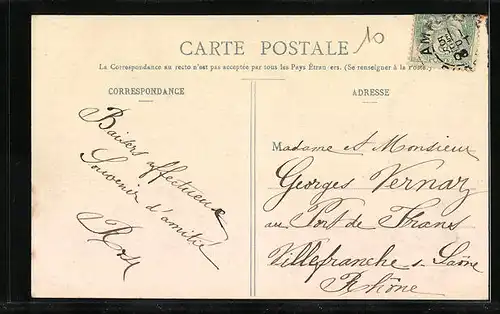 10
CARTE POSTALE
La Correspondance au recto n'est pas acceptée par tous les Pays Étrangers. (Se renseigner à la Poste.)
CORRESPONDANCE
ADRESSE
Baisers affectueux
Souvenir d'amitié
Rose
Madame et Monsieur
Georges Vernay
au Port de Frans
Villefranche s. Saône
Rhône